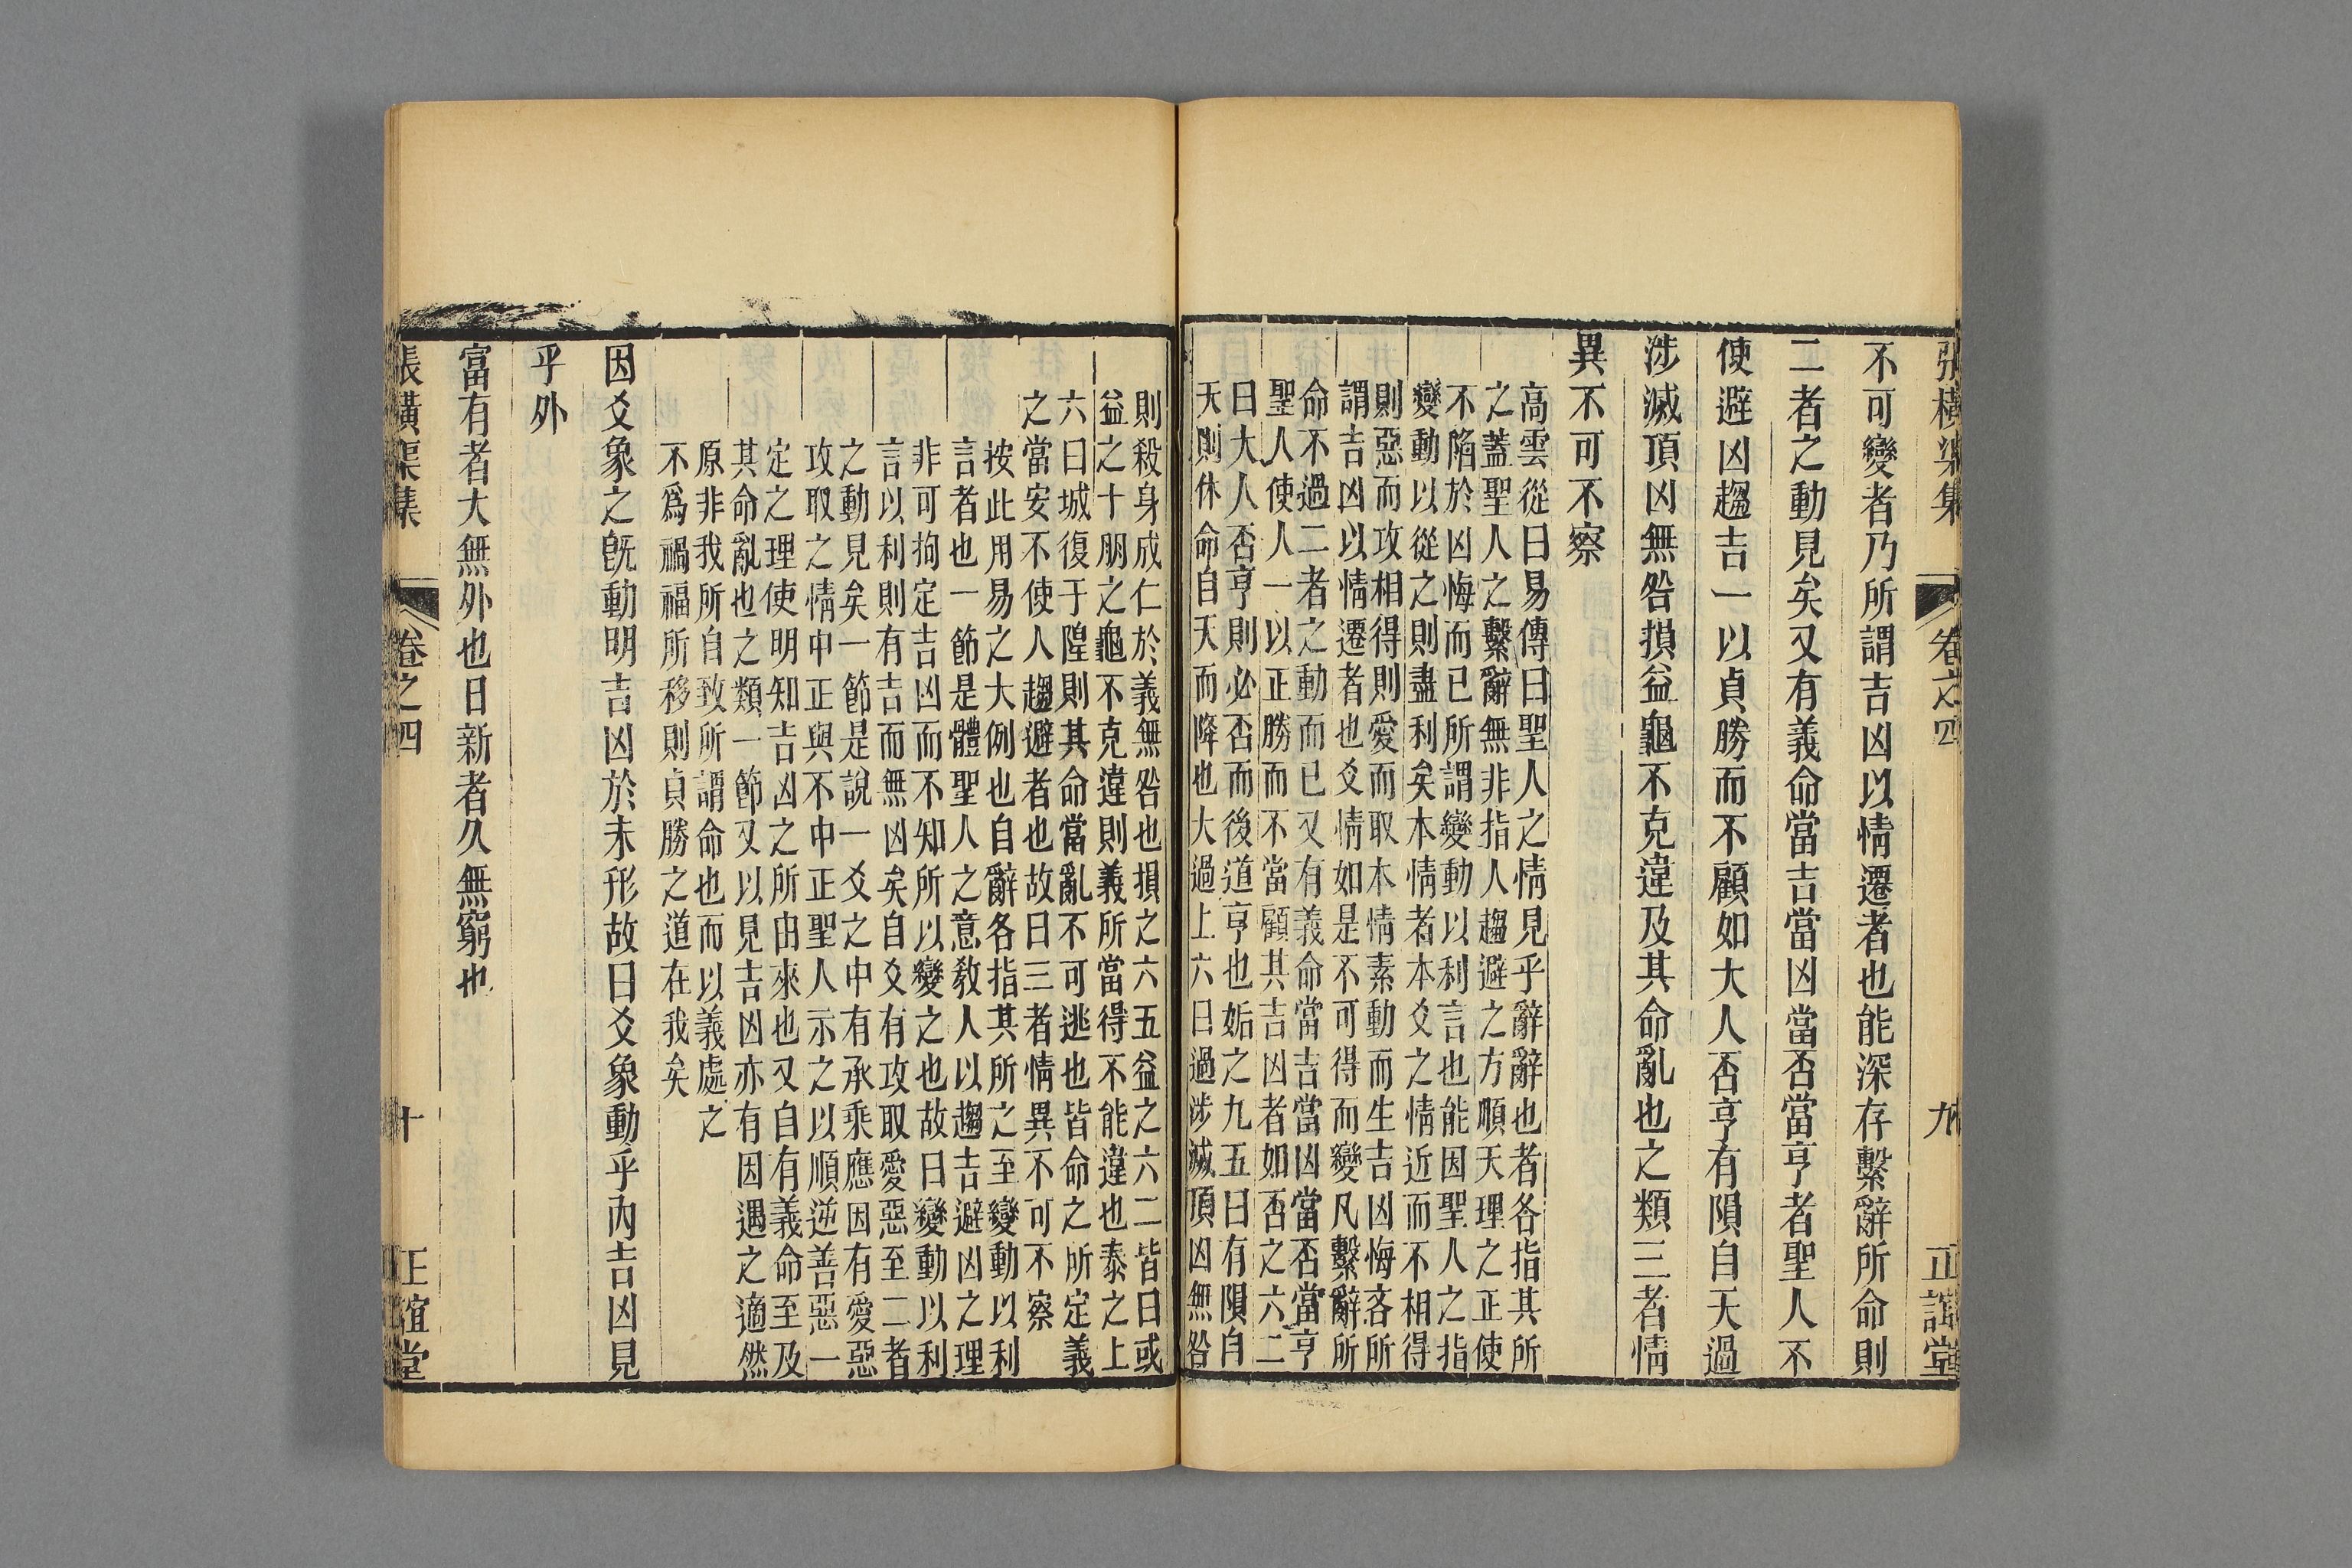 張橫渠集 卷之四 九 正誼堂
不可變者乃所謂吉凶以情遷者也能深存繫辭所命則
二者之動見矣又有義命當吉當凶當否當亨者聖人不
使避凶趨吉一以貞勝而不顧如大人否亨有隕自天過
涉滅頂凶無咎損益龜不克違及其命亂也之類三者情
異不可不察
高雲從曰易傳曰聖人之情見乎辭辭也者各指其所
之蓋聖人之繫辭無非指人趨避之方順天理之正使
不陷於凶悔而已所謂變動以利言也能因聖人之指
變動以從之則盡利矣本情者本爻之情近而不相得
則惡而攻相得則愛而取本情素動而生吉凶悔吝所
謂吉凶以情遷者也爻情如是不可得而變凡繫辭所
命不過二者之動而已又有義命當吉當凶當否當亨
聖人使人一以正勝而不當顧其吉凶者如否之六二
曰大人否亨則必否而後道亨也姤之九五曰有隕自
天則休命自天而降也大過上六曰過涉滅頂凶無咎
則殺身成仁於義無咎也損之六五益之六二皆曰或
益之十朋之龜不克違則義所當得不能違也泰之上
六曰城復于隍則其命當亂不可逃也皆命之所定義
之當安不使人趨避者也故曰三者情異不可不察
按此用易之大例也自辭各指其所之至變動以利
言者也一節是體聖人之意敎人以趨吉避凶之理
非可拘定吉凶而不知所以變之也故曰變動以利
言以利則有吉而無凶矣自爻有攻取愛惡至二者
之動見矣一節是說一爻之中有承乘應因有愛惡
攻取之情中正與不中正聖人示之以順逆善惡一
定之理使明知吉凶之所由來也又自有義命至及
其命亂也之類一節又以見吉凶亦有因遇之適然
原非我所自致所謂命也而以義處之
不爲禍福所移則貞勝之道在我矣
因爻象之旣動明吉凶於未形故曰爻象動乎內吉凶見
乎外
富有者大無外也日新者久無窮也
張橫渠集 卷之四 十 正誼堂